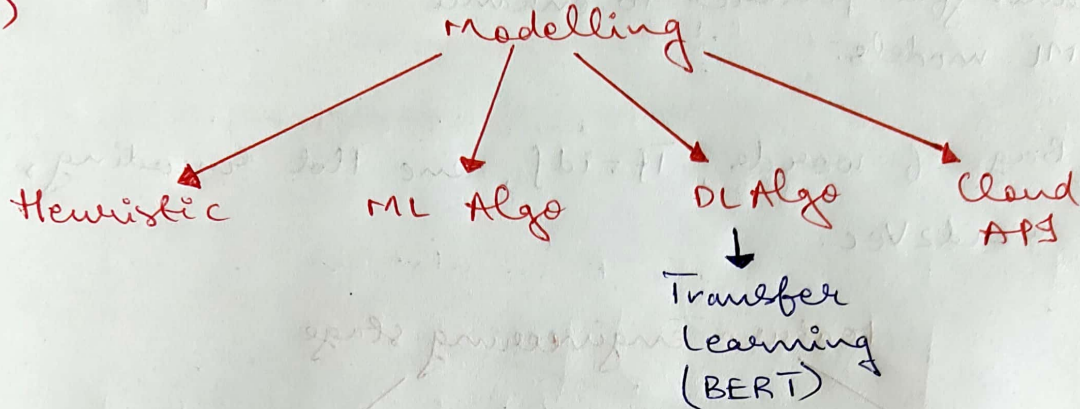 )
Modelling
Heuristic
ML Algo
DL Algo
Cloud
API
Transfer
Learning
(BERT)